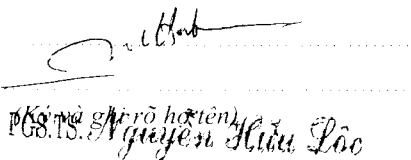 (Ký và ghi rõ họ tên)
PGS.TS. Nguyễn Hữu Lộc